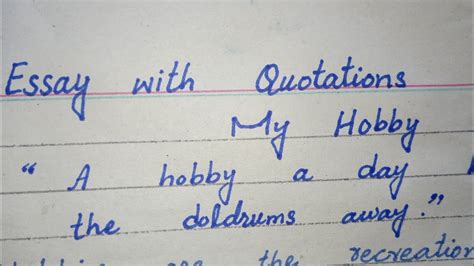 Essay with Quotations
My Hobby
“ A hobby a day
the doldrums away.”
the recreation